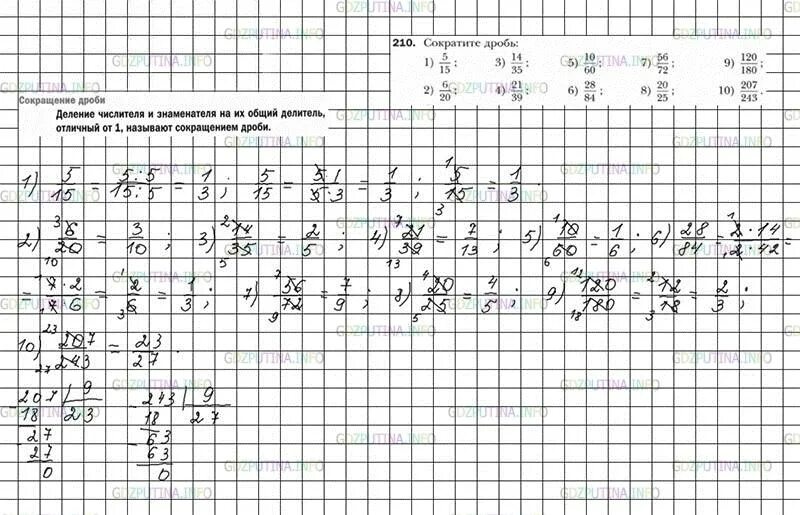 GDZPUTINA.INFO GDZPUTINA.INFO
210. Сократите дробь:
1) 5/15; 3) 14/35; 5) 10/60; 7) 56/72; 9) 120/180;
2) 6/20; 4) 21/39; 6) 28/84; 8) 20/25; 10) 207/243.
Сокращение дроби
Деление числителя и знаменателя на их общий делитель,
отличный от 1, называют сокращением дроби.
1) 5/15 = 5:5/15:5 = 1/3; 5/15 = 5 1/5 3 = 1/3; 5/15 = 1/3.
2) 6/20 = 3/10; 3) 14/35 = 2/5; 4) 21/39 = 7/13; 5) 10/60 = 1/6; 6) 28/84 = 2·14/2·42 =
= 7·2/7·6 = 2/6 = 1/3; 7) 56/72 = 7/9; 8) 20/25 = 4/5; 9) 120/180 = 12/18 = 2/3;
10) 207/243 = 23/27.
207 | 9 243 | 9
18 23 18 27
27 63
27 63
0 0